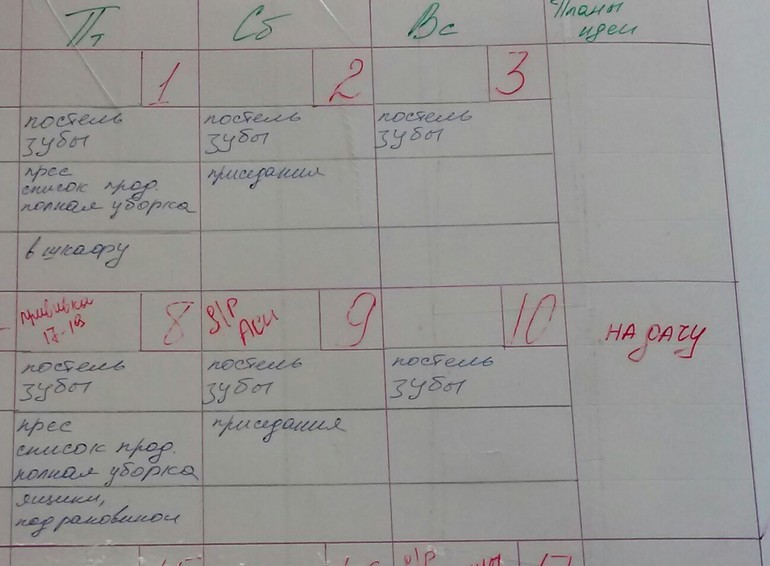 Пт Сб Вс Планы
идеи
1 2 3
постель постель постель
зубы зубы зубы
прес приседания
список прод.
полная уборка
в шкафу
прививка 8 Д/Р 9 10
17-18 АСИ
НА ДАЧУ
постель постель постель
зубы зубы зубы
прес приседания
список прод.
полная уборка
ящики,
под раковиной